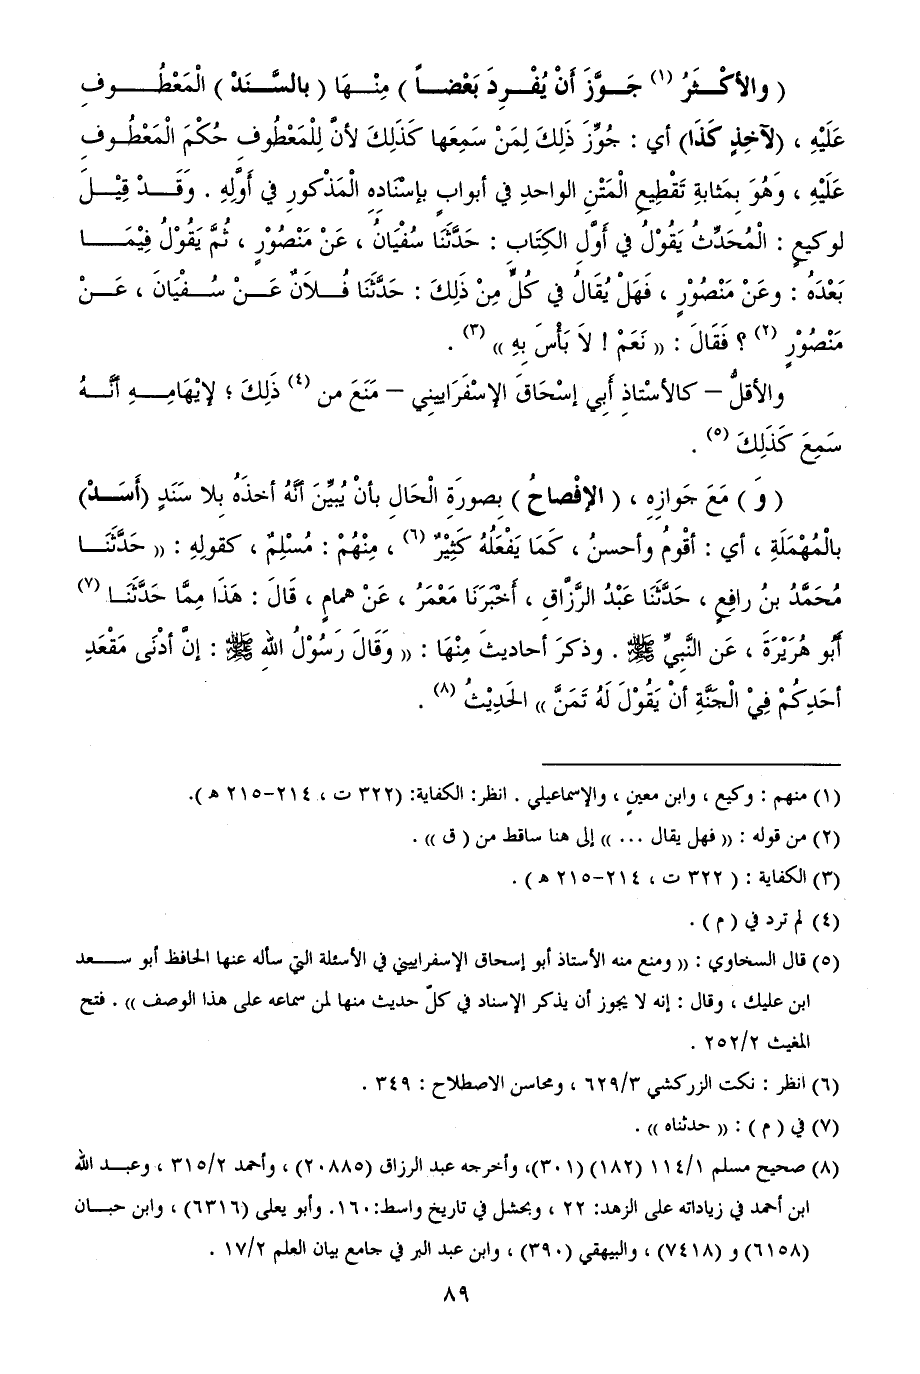 ( والأكْـثَرُ (١) جَـوَّزَ أَنْ يُفْـرِدَ بَعْضـاً ) مِنْـهَا ( بالسَّنَدْ ) الْمَعْطُـوفِ
عَلَيْهِ ، (لآخِذٍ كَذَا) أي : جُوِّزَ ذَلِكَ لِمَنْ سَمِعَها كَذَلِكَ لأنَّ لِلْمَعْطوفِ حُكْمَ الْمَعْطُوفِ
عَلَيْهِ ، وَهُوَ بِمَثابةِ تَقْطيعِ الْمَتْنِ الواحدِ في أبوابٍ بإسْنَادِه الْمَذْكورِ في أوَّلِهِ . وَقَـدْ قِيْـلَ
لوكيعٍ : الْمُحَدِّثُ يَقُوْلُ في أوَّلِ الكِتَابِ : حَدَّثَنَا سُفْيَانُ ، عَنْ مَنْصُوْرٍ ، ثُمَّ يَقُوْلُ فِيْمَـا
بَعْدَهُ : وعَنْ مَنْصُوْرٍ ، فَهَلْ يُقَالُ في كُلٍّ مِنْ ذَلِكَ : حَدَّثَنَا فُـلاَنٌ عَـنْ سُـفْيَانَ ، عَـنْ
مَنْصُوْرٍ (٢) ؟ فَقَالَ : (( نَعَمْ ! لاَ بَأْسَ بِهِ )) (٣) .
والأقلُّ – كالأسْتاذِ أبي إسْحَاقَ الإسْفَرَاييني – مَنَعَ من (٤) ذَلِكَ ؛ لإيْهَامِـهِ أنَّـهُ
سَمِعَ كَذَلِكَ (٥) .
( وَ ) مَعَ جَوازِهِ ، ( الإفْصاحُ ) بِصورَةِ الْحَالِ بأنْ يُبيِّنَ أنَّهُ أخذَهُ بلا سَنَدٍ (أَسَـدْ)
بالْمُهْمَلَةِ ، أي : أقْومُ وأحسنُ ، كَمَا يَفْعَلُهُ كَثِيْرٌ (٦) ، مِنْهُمْ : مُسْلِمٌ ، كقولِهِ : (( حَدَّثَنَـا
مُحَمَّدُ بنُ رافِعٍ ، حَدَّثَنَا عَبْدُ الرَّزَّاقِ ، أَخْبَرَنَا مَعْمَرُ ، عَنْ همامٍ ، قَالَ : هَذَا مِمَّا حَدَّثَنَـا (٧)
أَبُو هُرَيْرَةَ ، عَنِ النَّبيِّ ﷺ . وذكرَ أحاديثَ مِنْهَا : (( وَقَالَ رَسُوْلُ اللهِ ﷺ : إنَّ أدْنَى مَقْعَدِ
أحَدِكُمْ فِيْ الْجَنَّةِ أنْ يَقُوْلَ لَهُ تَمَنَّ )) الحَدِيْثُ (٨) .
(١) منهم : وكيع ، وابن معينٍ ، والإسماعيلي . انظر: الكفاية: (٣٢٢ ت ، ٢١٤-٢١٥ هـ ).
(٢) من قوله : (( فهل يقال ... )) إلى هنا ساقط من ( ق )) .
(٣) الكفاية : ( ٣٢٢ ت ، ٢١٤-٢١٥ هـ ) .
(٤) لم ترد في ( م ) .
(٥) قال السخاوي : (( ومنع منه الأستاذ أبو إسحاق الإسفراييني في الأسئلة التي سأله عنها الحافظ أبو سـعد
ابن عليك ، وقال : إنه لا يجوز أن يذكر الإسناد في كلّ حديث منها لمن سماعه على هذا الوصف )) . فتح
المغيث ٢٥٢/٢ .
(٦) انظر : نكت الزركشي ٦٢٩/٣ ، ومحاسن الاصطلاح : ٣٤٩ .
(٧) في ( م ) : (( حدثناه )) .
(٨) صحيح مسلم ١١٤/١ (١٨٢) (٣٠١)، وأخرجه عبد الرزاق (٢٠٨٨٥) ، وأحمد ٣١٥/٢ ، وعبـد الله
ابن أحمد في زياداته على الزهد: ٢٢ ، وبحشل في تاريخ واسط: ١٦٠. وأبو يعلى (٦٣١٦) ، وابن حبـان
(٦١٥٨) و (٧٤١٨) ، والبيهقي (٣٩٠) ، وابن عبد البر في جامع بيان العلم ١٧/٢ .
٨٩